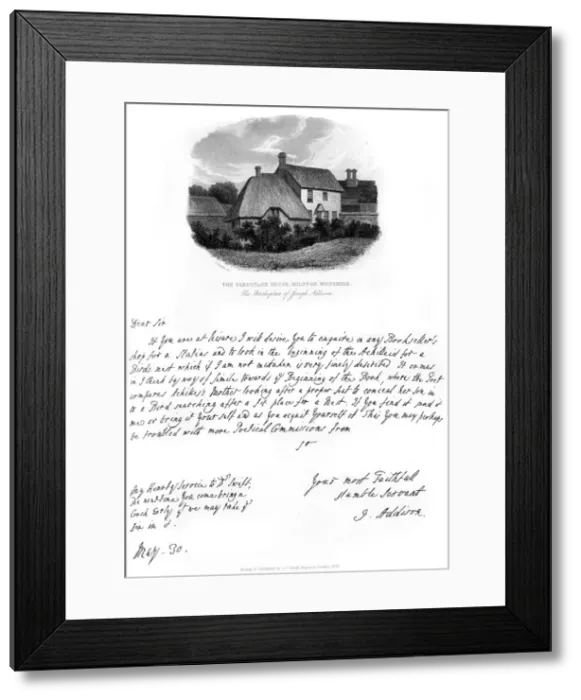 THE PARSONAGE HOUSE, MILSTON, WILTSHIRE.
The Birthplace of Joseph Addison.
Dear Sir
If You are at leisure I will desire You to enquire in any Bookseller's
shop for a Statius and to look in the beginning of the Achilleid for a
Birds nest which if I am not mistaken is very finely described. It comes
in I think by way of simile towards ye Beginning of the Book, where the Poet
compares Achilles's Mother looking after a proper place to conceal her son in
to a Bird searching after a fit place for a Nest. If You find it send it
me or bring it Your self and as You acquit Yourself of This You may perhaps
be troubled with more Poetical Commissions from
Sr
Your most Faithfull
Humble Servant
J. Addison.
My Humble Service to Dr Swift.
The next time You come bring a
Coach Early yt we may take ye
Air in it.
May. 30.